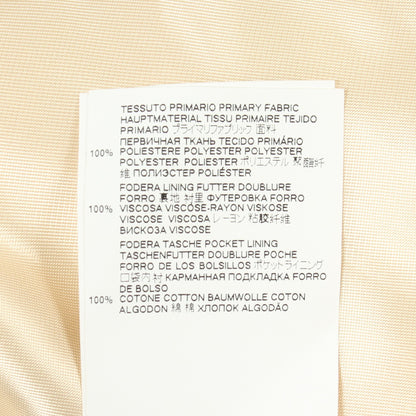 TESSUTO PRIMARIO PRIMARY FABRIC
HAUPTMATERIAL TISSU PRIMAIRE TEJIDO
PRIMARIO プライマリファブリック 面料
ПЕРВИЧНАЯ ТКАНЬ TECIDO PRIMÁRIO
100% POLIESTERE POLYESTER POLYESTER
POLYESTER POLIESTER ポリエステル 聚酯纤
维 ПОЛИЭСТЕР POLIÉSTER
FODERA LINING FUTTER DOUBLURE
FORRO 裏地 衬里 ФУТЕРОВКА FORRO
100% VISCOSA VISCOSE-RAYON VISKOSE
VISCOSE VISCOSA レーヨン 粘胶纤维
ВИСКОЗА VISCOSE
FODERA TASCHE POCKET LINING
TASCHENFUTTER DOUBLURE POCHE
FORRO DE LOS BOLSILLOS ポケットライニング
口袋内衬 КАРМАННАЯ ПОДКЛАДКА FORRO
DE BOLSO
100% COTONE COTTON BAUMWOLLE COTON
ALGODON 綿 棉 ХЛОПОК ALGODÃO